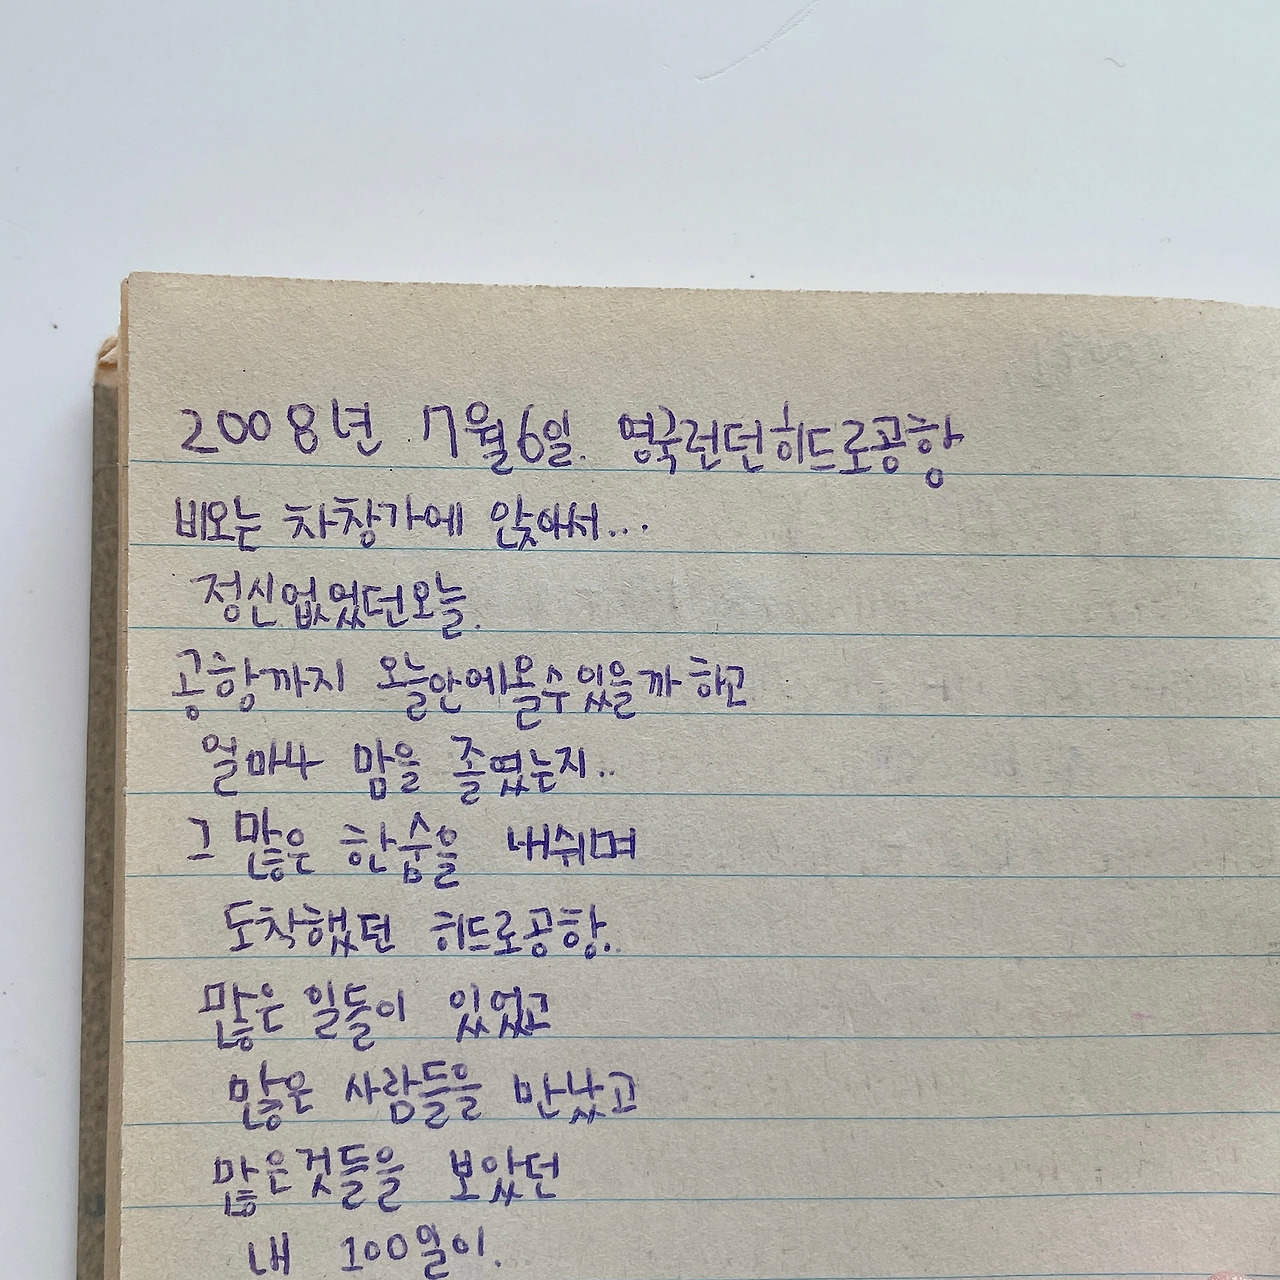 2008년 7월6일. 영국런던히드로공항
비오는 차창가에 앉아서...
정신없었던오늘.
공항까지 오늘안에올수있을까 하고
얼마나 맘을 졸였는지..
그 많은 한숨을 내쉬며
도착했던 히드로공항..
많은 일들이 있었고
많은 사람들을 만났고
많은것들을 보았던
내 100일이.